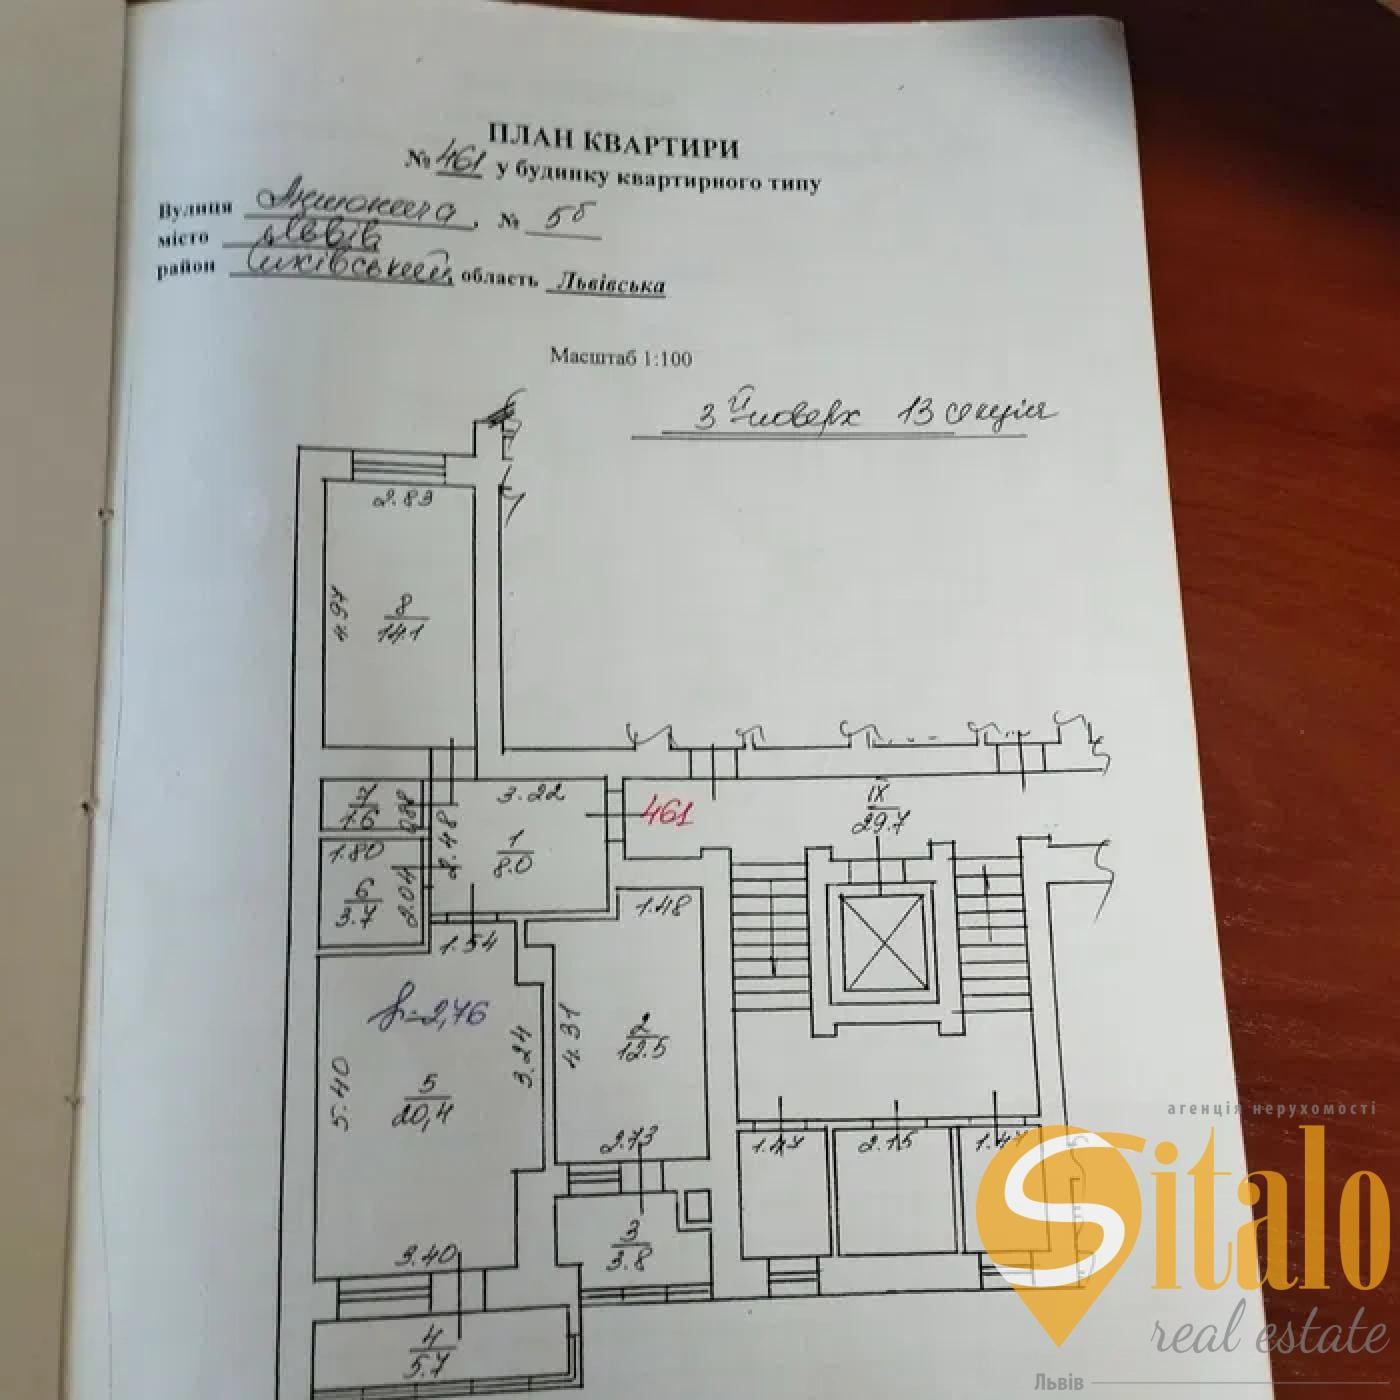 ПЛАН КВАРТИРИ
№ 461 у будинку квартирного типу
Вулиця № 5б
місто Львів
район Сихівський, область Львівська
Масштаб 1:100
3й поверх 13 секція
2.83
4.97
8
14.1
7
1.6
0.88
3.22
461
IX
29.7
1.80
2.48
1
8.0
6
3.7
2.04
1.54
1.48
h=2,76
4.31
2
12.5
3.24
5.40
5
20,4
2.73
1.47
2.15
1.47
3.40
3
3.8
4
5.7
агенція нерухомості
Sitalo
real estate
Львів